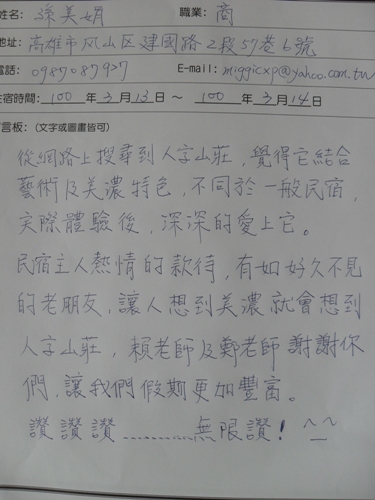 姓名：孫美娟 職業：商
地址：高雄市凤山区建國路2段57巷6號
電話：0987087927 E-mail：miggicxp@yahoo.com.tw
住宿時間：100 年 3 月 13 日 ～ 100 年 3 月 14 日
言板：(文字或圖畫皆可)
從網路上搜尋到人字山莊，覺得它結合
藝術及美濃特色，不同於一般民宿，
实際體驗後，深深的愛上它。
民宿主人熱情的款待，有如好久不見
的老朋友，讓人想到美濃就會想到
人字山莊，賴老師及鄭老師謝謝你
們，讓我們假期更加豐富。
讚讚讚…………無限讚！^_^